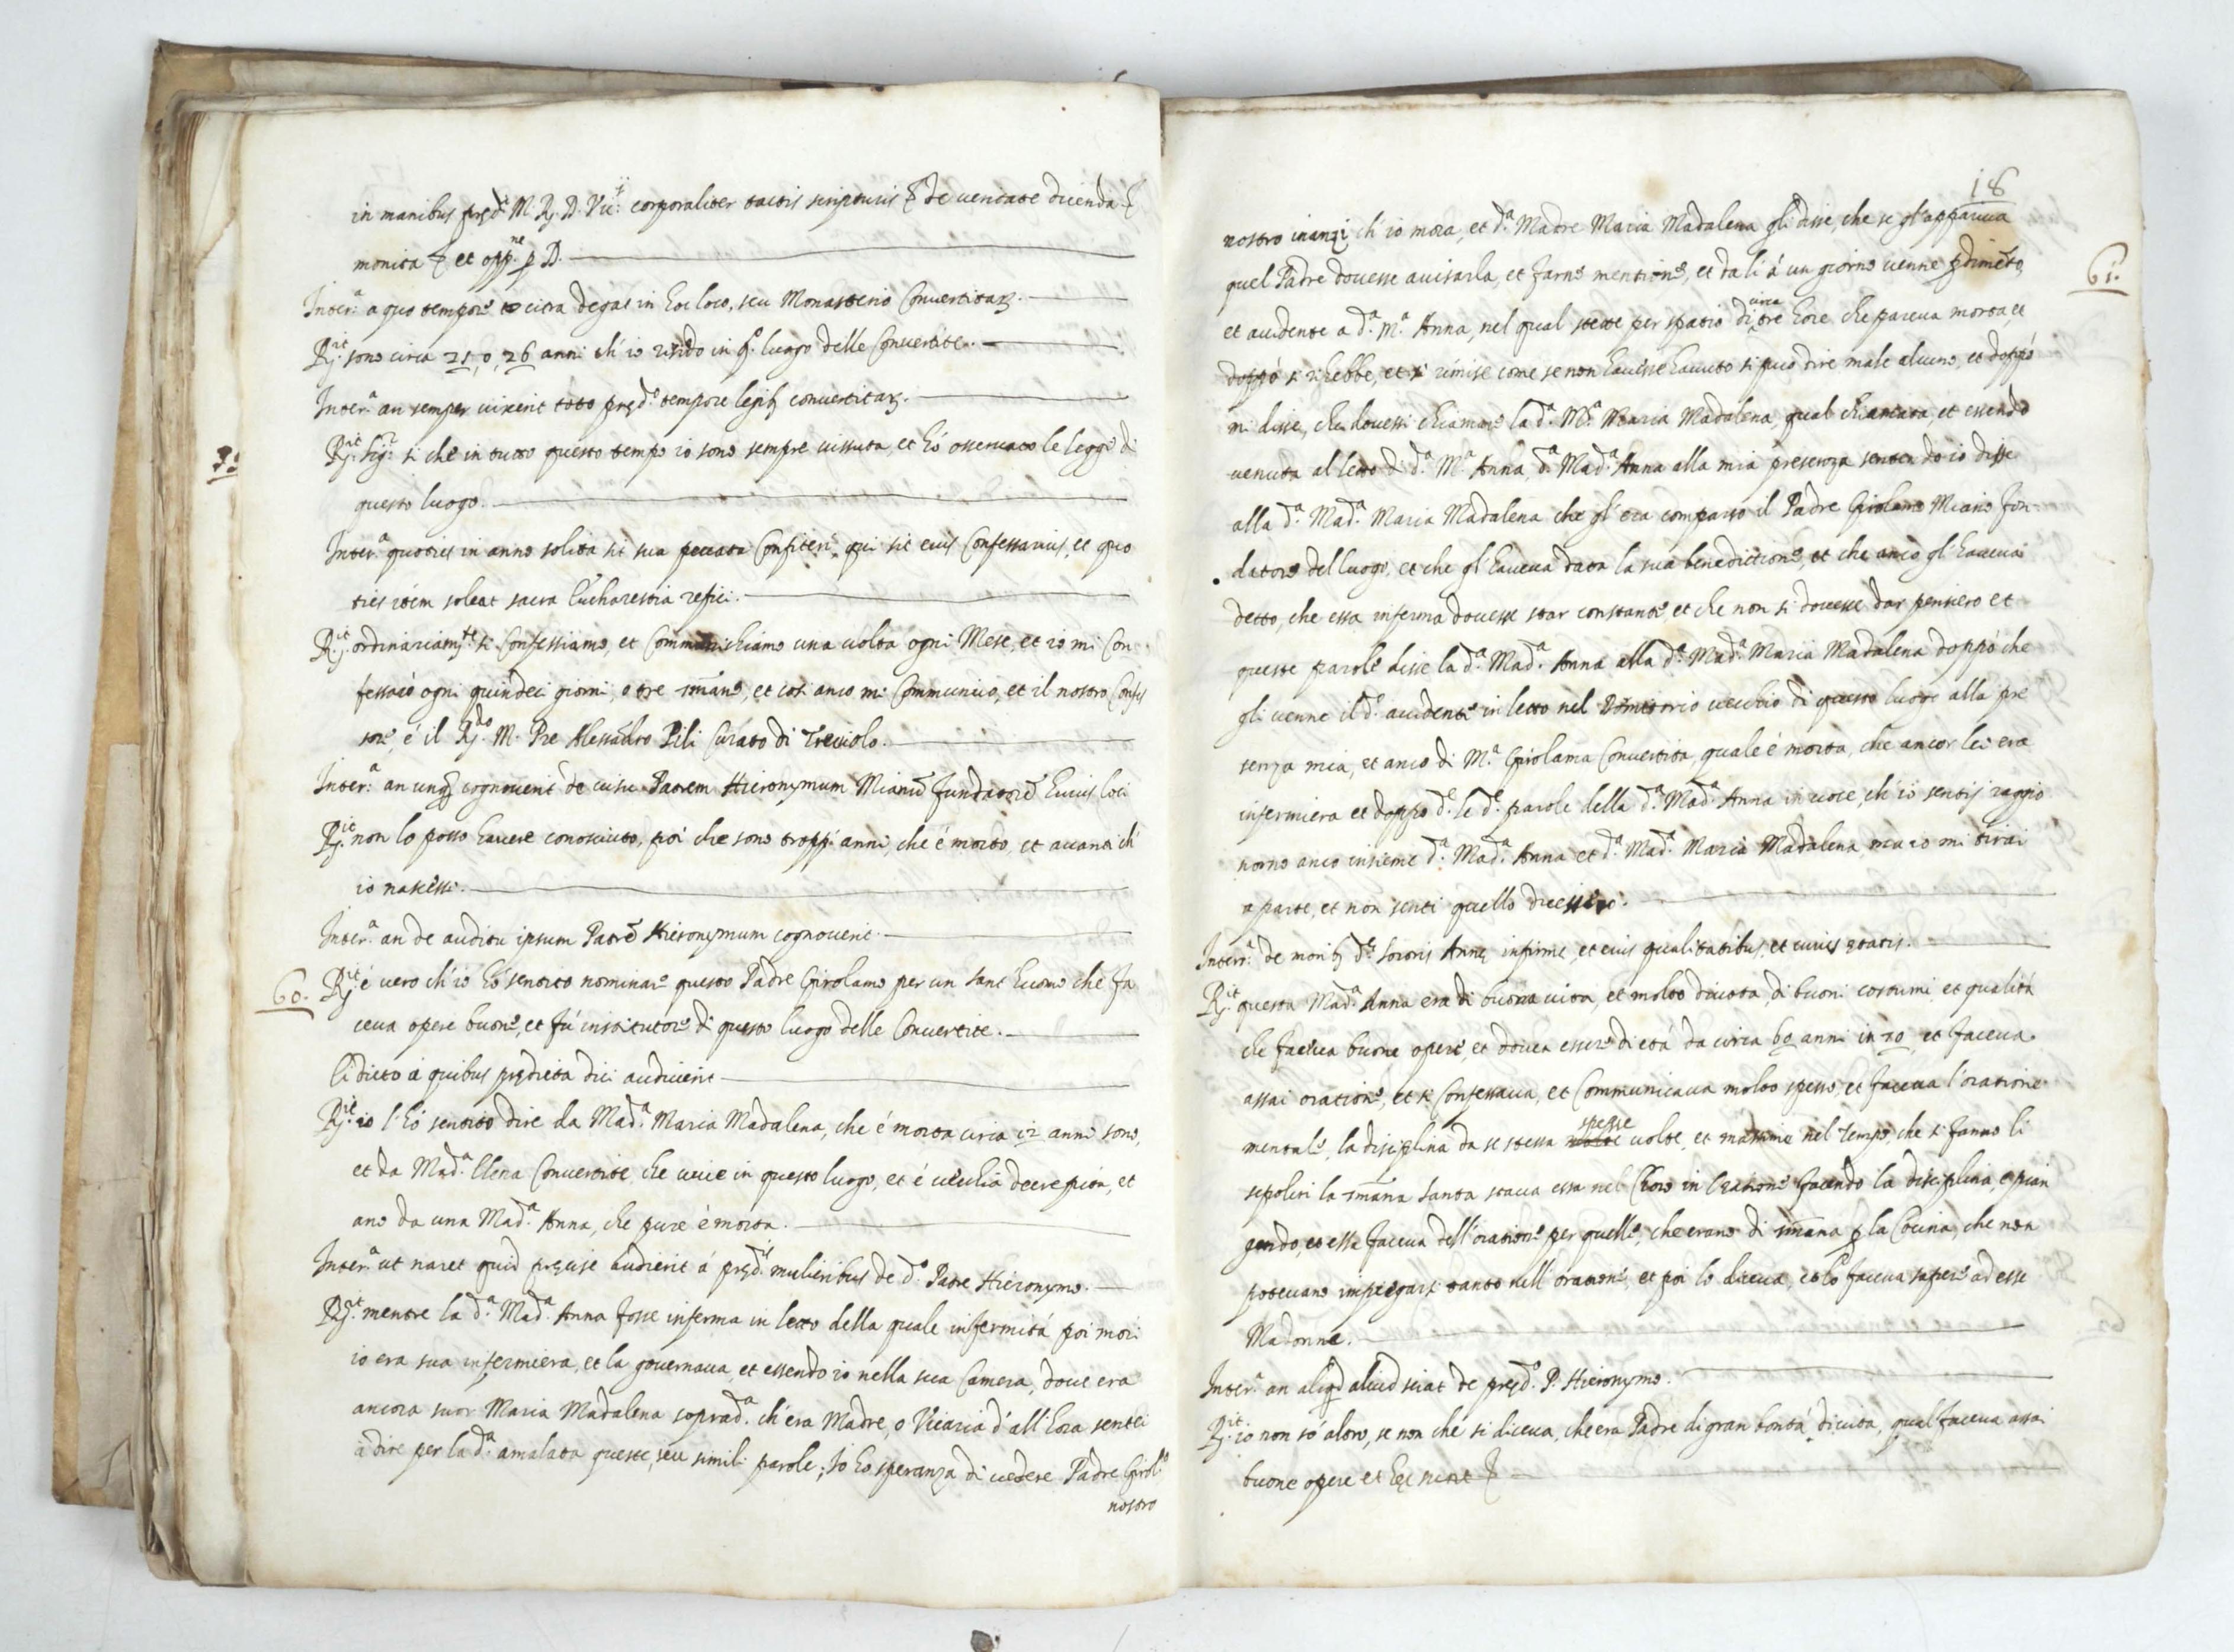 in manibus pręd.ti M. R. D. Vic.ii corporaliter tactis scripturis &c de veritate dicenda &c
monita &c et opp.ne p D.
Inter.a a quo tempore citra degat in hoc loco, seu Monasterio Convertitar.
R.it sono circa 25, o, 26 anni ch'io resido in q.o luogo delle Convertite.
Inter.a an semper vixerit toto pręd.o tempore convertitar.
R.it Sig.r si che in tutto questo tempo io sono sempre vissuta, et hó osservato le leggi di
questo luogo.
Inter.a quoties in anno solita sit sua peccata Confiteri, qui sit eius Confessarius, et quo
ties item soleat sacra Eucharestia refici.
R.it ordinariam.te si Confessiamo, et Communichiamo una volta ogni Mese, et io mi Con
fessaró ogni quindeci giorni, o tre smane, et cosi anco mi Communico, et il nostro Confes
sore é il R.do M. Pre Alessandro Pili Curato di Treviolo.
Inter.a an unq. cognoverit de visu Patrem Hieronymum Mianũ fundatorẽ huius loci
R.it non lo posso havere conosciuto, poi che sono troppi anni, che é morto, et avanti ch'
io nascessi.
Inter.a an de auditu ipsum Patrẽ Hieronymum cognoverit.
60. R.it é vero ch'io hó sentito nominare questo Padre Girolamo per un sant huomo che fa
ceva opere buone, et fú institutore di questo luogo delle Convertite.
Ei dicto á quibus prędicta dici audiverit
R.it io l'hó sentito dire da Mad.a Maria Madalena, che é morta circa 12 anni sono,
et da Mad.a Elena Convertite, che vive in questo luogo, et é vecchia decrepita, et
anco da una Mad.a Anna, che pure é morta.
Inter.a ut narret quid pręcise audierit á pręd.is mulieribus de d.o Patre Hieronymo.
R.it mentre la d.a Mad.a Anna fosse inferma in letto della quale infermitá poi morí
io era sua infermiera, et la governava, et essendo io nella sua Camera, dove era
ancora suor Maria Madalena soprad.a ch'era Madre, o Vicaria d'all'hora senti
á dire per la d.a amalata queste, seu simili parole; Io hó speranza di vedere Padre Girol.o
nostro
18
nostro inanzi ch'io mora, et d.a Madre Maria Madalena gli disse, che se gl'appariva
61.
quel Padre dovesse avisarla, et farne mentione, et da li á un giorno venne
et accidente a d.a M.a Anna, nel qual stette per spatio di circa tre hore che pareva morta, et
doppó si rihebbe, et si rimise come se non havesse havuto si puó dire male alcuno, et doppó
mi disse, che dovessi chiamare la d.a M.a Maria Madalena, qual chiamata, et essendo
venuta al letto di d.a M.a Anna, d.a Mad.a Anna alla mia presenza sentendo io disse
alla d.a Mad.a Maria Madalena che gl'era comparso il Padre Girolamo Miano fon=
datore del luogo, et che gl'haveva data la sua benedictione, et che anco gl'haveva
detto, che essa inferma dovesse star constante et che non si dovesse dar pensiero et
queste parole disse la d.a Mad.a Anna alla d.a Mad.a Maria Madalena doppó che
gli venne il d.o accidente in letto nel Dormitorio vecchio di questo luogo alla pre
senza mia, et anco di M.a Girolama Convertita, quale é morta, che ancor lei era
infermiera et doppo d.e le d.e parole della d.a Mad.a Anna in voce, ch'io sentij raggio
norno anco insieme d.a Mad.a Anna et d.a Mad.a Maria Madalena, ma io mi tirai
a parte, et non senti quello dicessero.
Interr.a de morib. d.ę sororis Annę infirmę, et eius qualitatibus, et cuius ętatis.
R.it questa Mad.a Anna era di buona vita, et molto divota, di buoni costumi, et qualitá
che faceva buone opere, et doveva essere di etá da circa 60 anni in 70, et faceva
assai oratione, et si Confessava, et Communicava molto spesso, et faceva l'oratione
mentale, la disciplina da se stessa spesse volte, et massime nel tempo, che si fanno li
sepolcri la smana santa stava essa nel Choro in Oratione facendo la disciplina, e pian
gendo, et essa faceva dell'oratione per quelle, che erano di smana p la Cocina, che non
potevano impiegarsi tanto nell'oratione, et poi lo diceva, et lo faceva sapere ad esse
Madonne.
Inter.a an aliq.d aliud sciat de pręd.o P. Hieronymo.
R.it io non só altro, se non che si diceva, che era Padre di gran bontá di vita, qual faceva assai
buone opere et &c